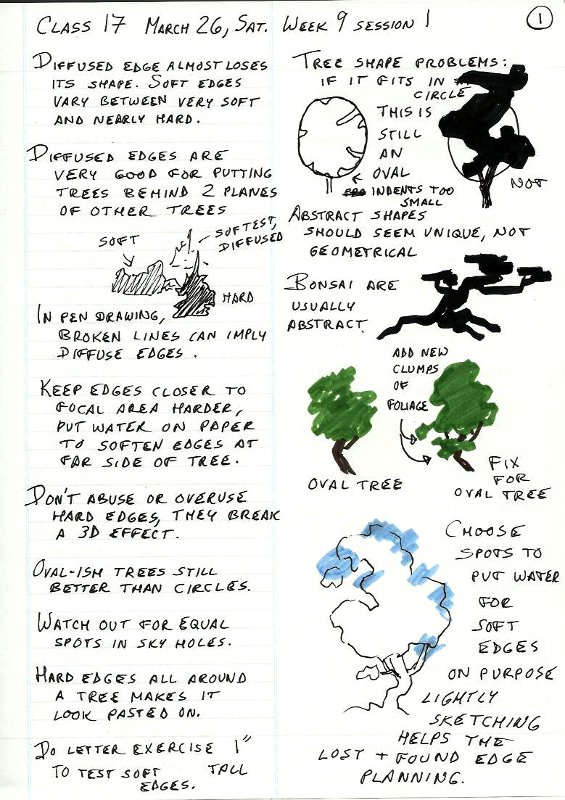 CLASS 17 MARCH 26, SAT. WEEK 9 SESSION 1
1
DIFFUSED EDGE ALMOST LOSES
ITS SHAPE. SOFT EDGES
VARY BETWEEN VERY SOFT
AND NEARLY HARD.
DIFFUSED EDGES ARE
VERY GOOD FOR PUTTING
TREES BEHIND 2 PLANES
OF OTHER TREES
SOFT
SOFTEST,
DIFFUSED
HARD
IN PEN DRAWING,
BROKEN LINES CAN IMPLY
DIFFUSE EDGES.
KEEP EDGES CLOSER TO
FOCAL AREA HARDER,
PUT WATER ON PAPER
TO SOFTEN EDGES AT
FAR SIDE OF TREE.
DON'T ABUSE OR OVERUSE
HARD EDGES, THEY BREAK
A 3D EFFECT.
OVAL-ISH TREES STILL
BETTER THAN CIRCLES.
WATCH OUT FOR EQUAL
SPOTS IN SKY HOLES.
HARD EDGES ALL AROUND
A TREE MAKES IT
LOOK PASTED ON.
DO LETTER EXERCISE 1"
TO TEST SOFT TALL
EDGES.
TREE SHAPE PROBLEMS:
IF IT FITS IN
CIRCLE
THIS IS
STILL
AN
OVAL
INDENTS TOO
SMALL
NOT
ABSTRACT SHAPES
SHOULD SEEM UNIQUE, NOT
GEOMETRICAL
BONSAI ARE
USUALLY
ABSTRACT.
ADD NEW
CLUMPS
OF
FOLIAGE
OVAL TREE
FIX
FOR
OVAL TREE
CHOOSE
SPOTS TO
PUT WATER
FOR
SOFT
EDGES
ON PURPOSE
LIGHTLY
SKETCHING
HELPS THE
LOST + FOUND EDGE
PLANNING.